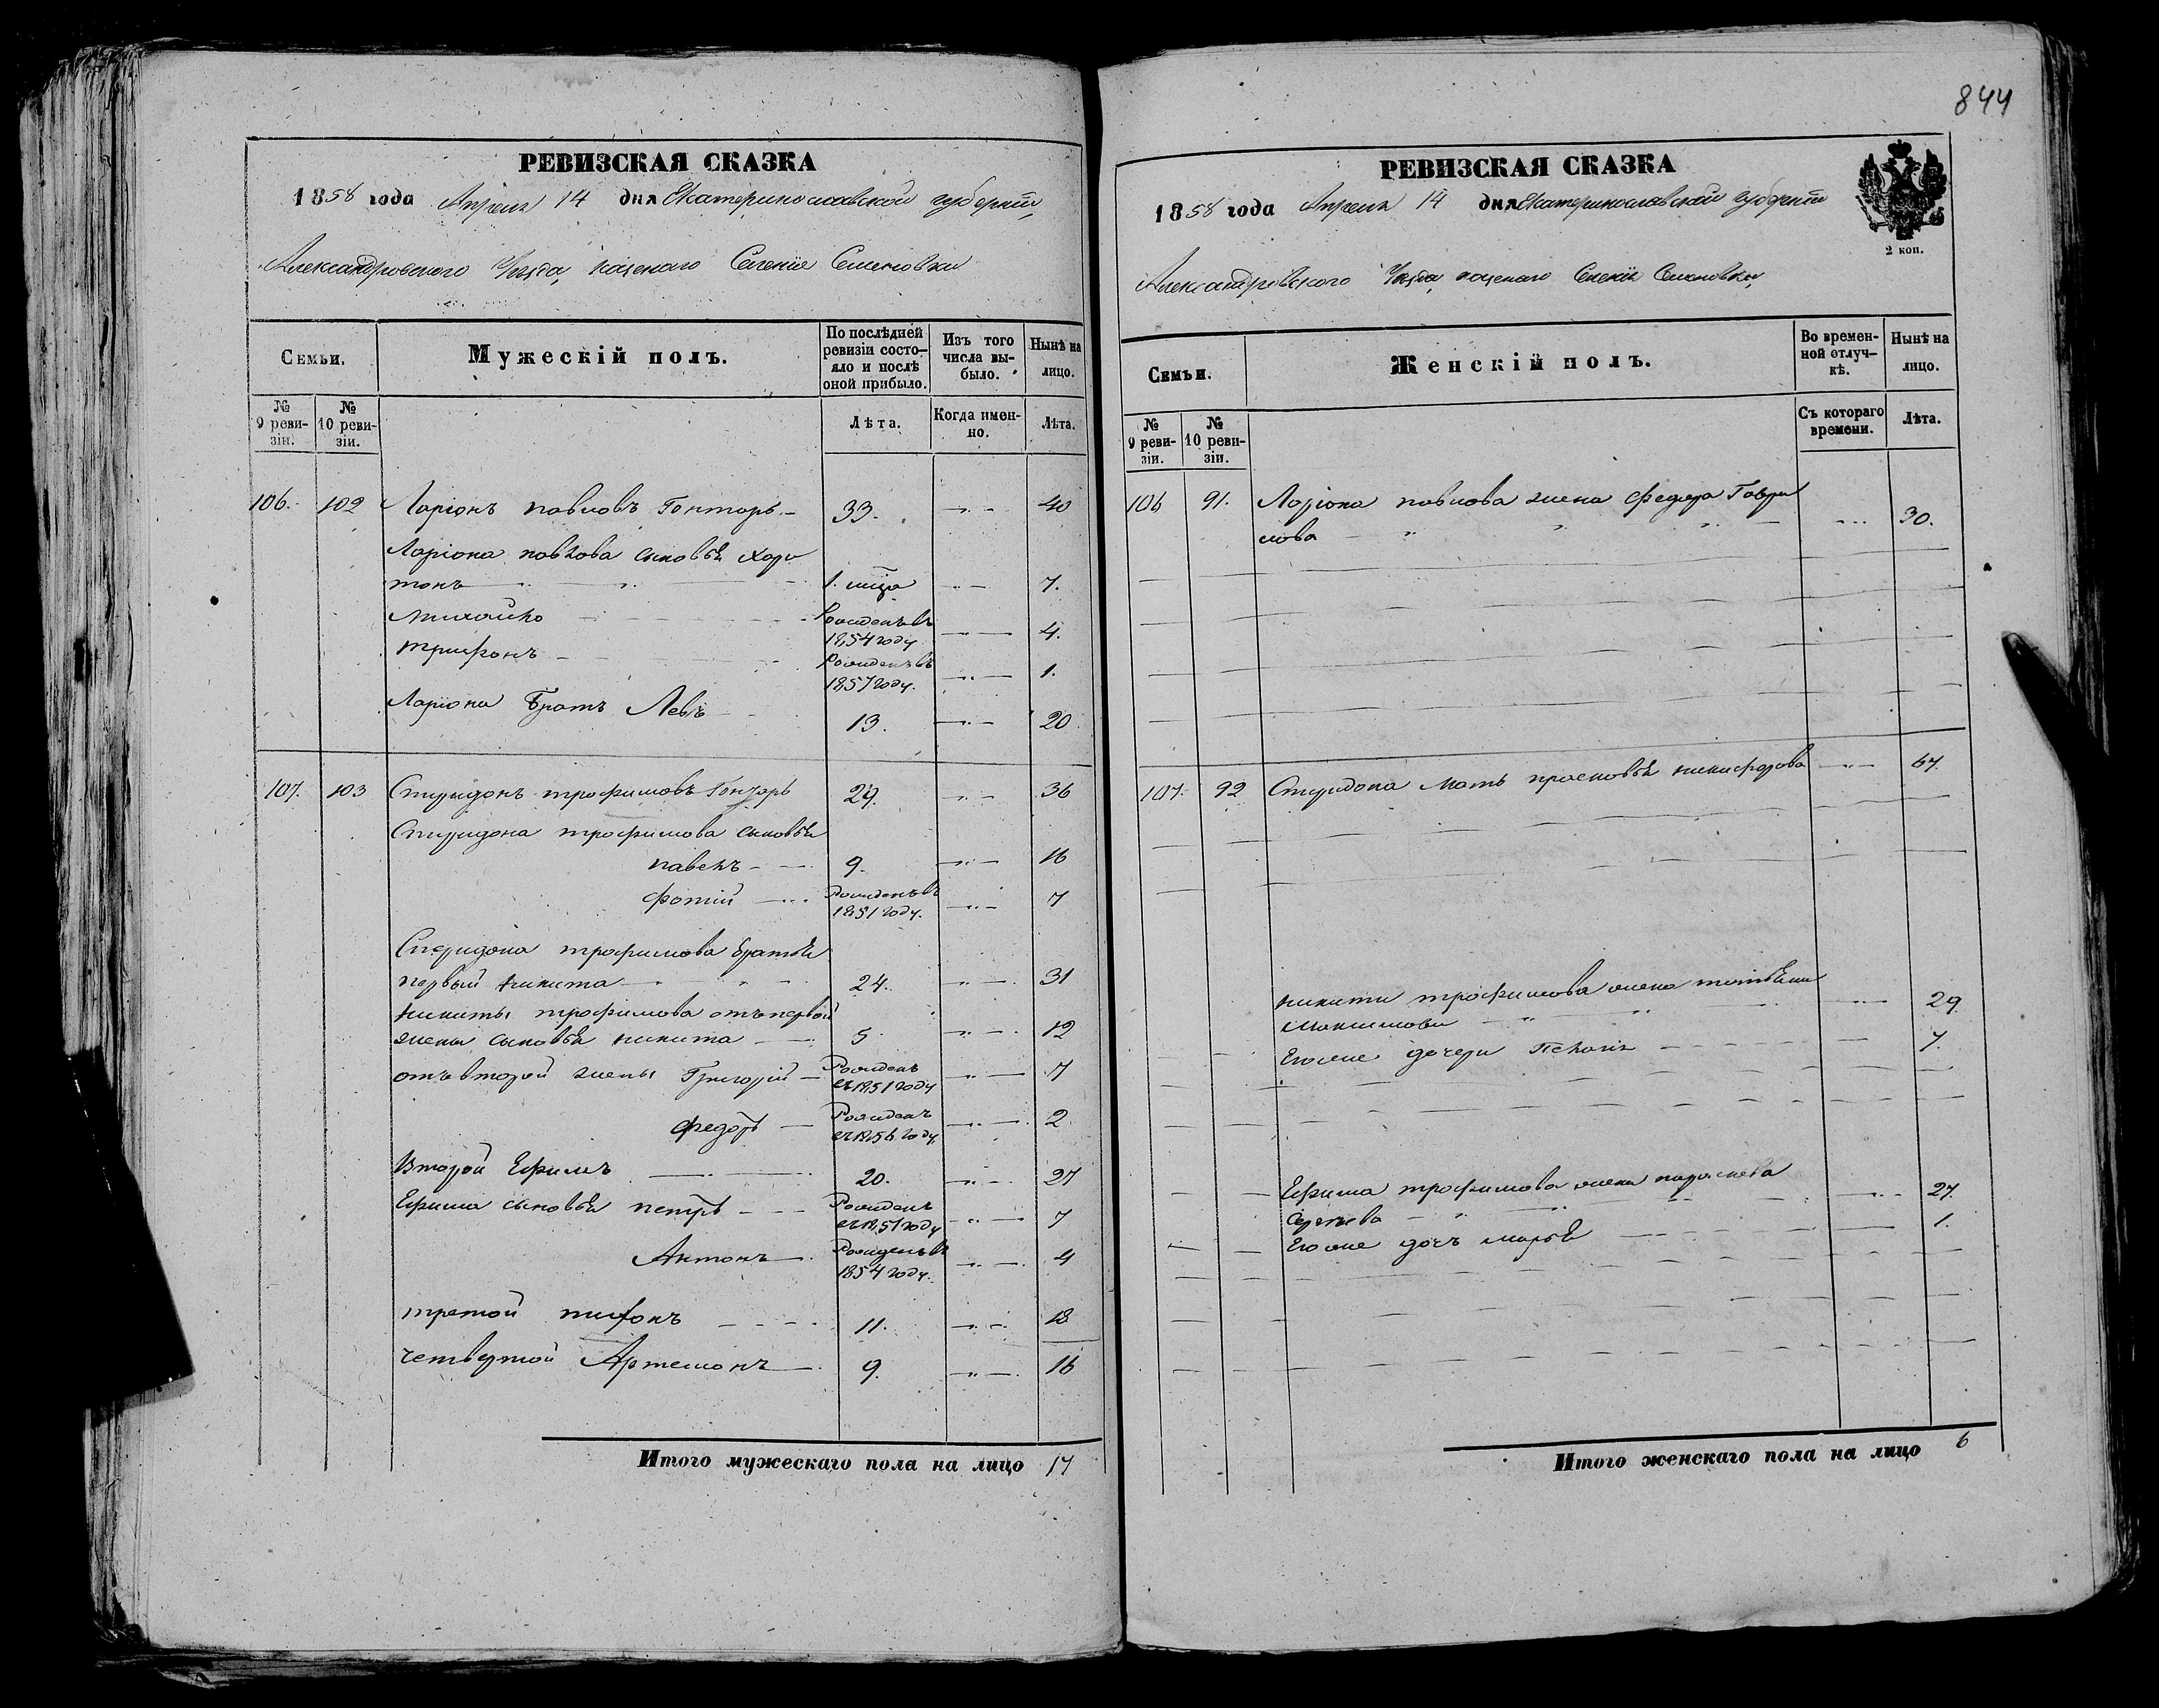 844
РЕВИЗСКАЯ СКАЗКА
1858 года Апреля 14 дня Екатеринославской губернiи,
Александровского Уезда, казенаго Селенiе Семеновки
Семьи.
Мужескiй полъ.
По послѣдней ревизiи состояло и послѣ оной прибыло.
Изъ того числа выбыло.
Нынѣ на лицо.
№ 9 ревизiи.
№ 10 ревизiи.
Лѣта.
Когда именно.
Лѣта.
106. 102 Ларiонъ павловъ Гонторь 33. 40
Ларiона павлова сыновья Хари
тонъ 1. мца 7.
Михайло Рожденъ въ 1854 году 4.
трифонъ Рожденъ въ 1857 году. 1.
Ларiона Братъ Левъ 13. 20
107. 103 Спиридонъ трофимовъ Гончарь 29. 36
Спиридона трофимова сыновья
павелъ 9. 16
фотiй Рожденъ въ 1851 году. 7
Спиридона трофимова братья
первый никита 24. 31
никиты трофимова отъ первой
жены сыновья никита 5 12
отъ второй жены Григорiй Рожденъ въ 1851 году 7
федоръ Рожденъ въ 1856 году 2
Второй Ефимъ 20. 27
Ефима сыновья петръ Рожденъ въ 1851 году 7
Антонъ Рожденъ въ 1854 году. 4
третой 11. 18
четвертой Артемонъ 9. 16
Итого мужескаго пола на лицо 17
РЕВИЗСКАЯ СКАЗКА
1858 года Апреля 14 дня Екатеринославской губернiи
2 коп.
Александровского Уезда, казенаго Селенiя Семеновки,
Семьи.
Женскiй полъ.
Во временной отлучкѣ.
Нынѣ на лицо.
№ 9 ревизiи.
№ 10 ревизiи.
Съ котораго времени.
Лѣта.
106 91. Ларiона павлова жена федора Гаври
лова 30.
107. 92 Спиридона Мать прасковья никифорова 67.
никиты трофимова жена
Максимова 29
Его же дочери 7.
Ефима трофимова жена параскева
Сергеева 27.
Его же дочь марья 1.
Итого женскаго пола на лицо 6